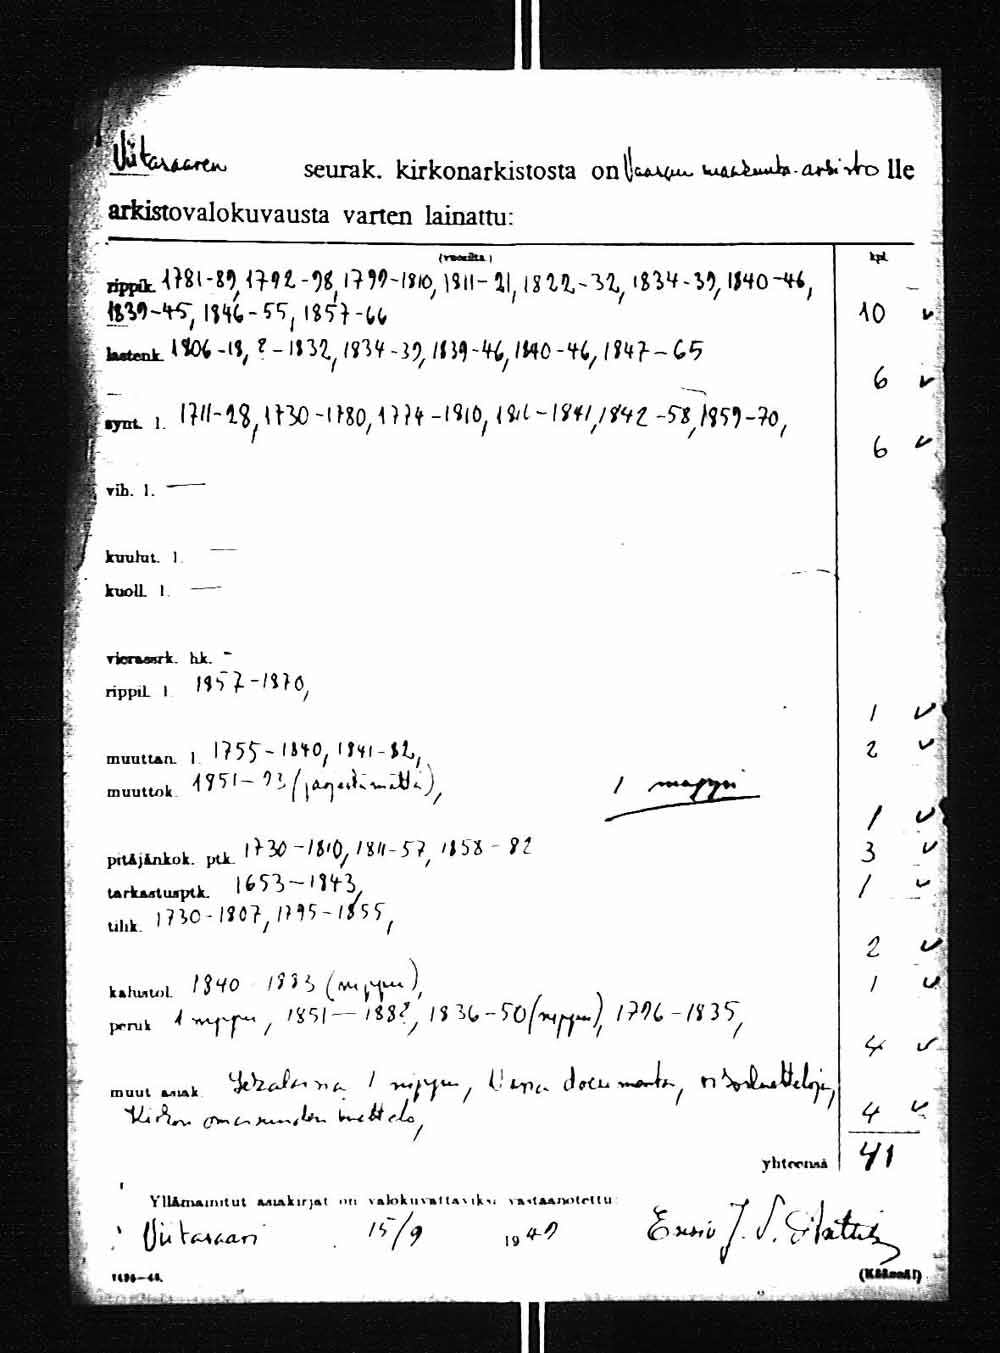 Viitasaaren seurak. kirkonarkistosta on Vaasan maakunta-arkisto lle
arkistovalokuvausta varten lainattu:
(vuosilta) kpl.
rippik. 1781-89, 1792-98, 1799-1810, 1811-21, 1822-32, 1834-39, 1840-46,
1839-45, 1846-55, 1857-66 10
lastenk. 1806-18, ?-1832, 1834-39, 1839-46, 1840-46, 1847-65
6
synt. l. 1711-28, 1730-1780, 1774-1810, 1811-1841, 1842-58, 1859-70,
6
vih. l. —
kuulut. l. —
kuoll. l. —
vierassrk. hk. -
rippil. l. 1857-1870,
1
muuttan. l. 1755-1840, 1841-82, 2
muuttok. 1851-93 (järjestämättä), 1 mappi
1
pitäjänkok. ptk. 1730-1810, 1811-57, 1858-82 3
tarkastusptk. 1653-1843, 1
tilik. 1730-1807, 1795-1855,
2
kalustol. 1840-1883 (nippu), 1
peruk. 1 nippu, 1851-1882, 1836-50 (nippu), 1796-1835,
4
muut asiak. Sekalaisia 1 nippu,
Kirkon omaisuuden luettelo, 4
yhteensä 41
Yllämainitut asiakirjat on valokuvattaviksi vastaanotettu:
Viitasaari 15/9 1949 Ensio J. S.
1496—48. (Käännä!)